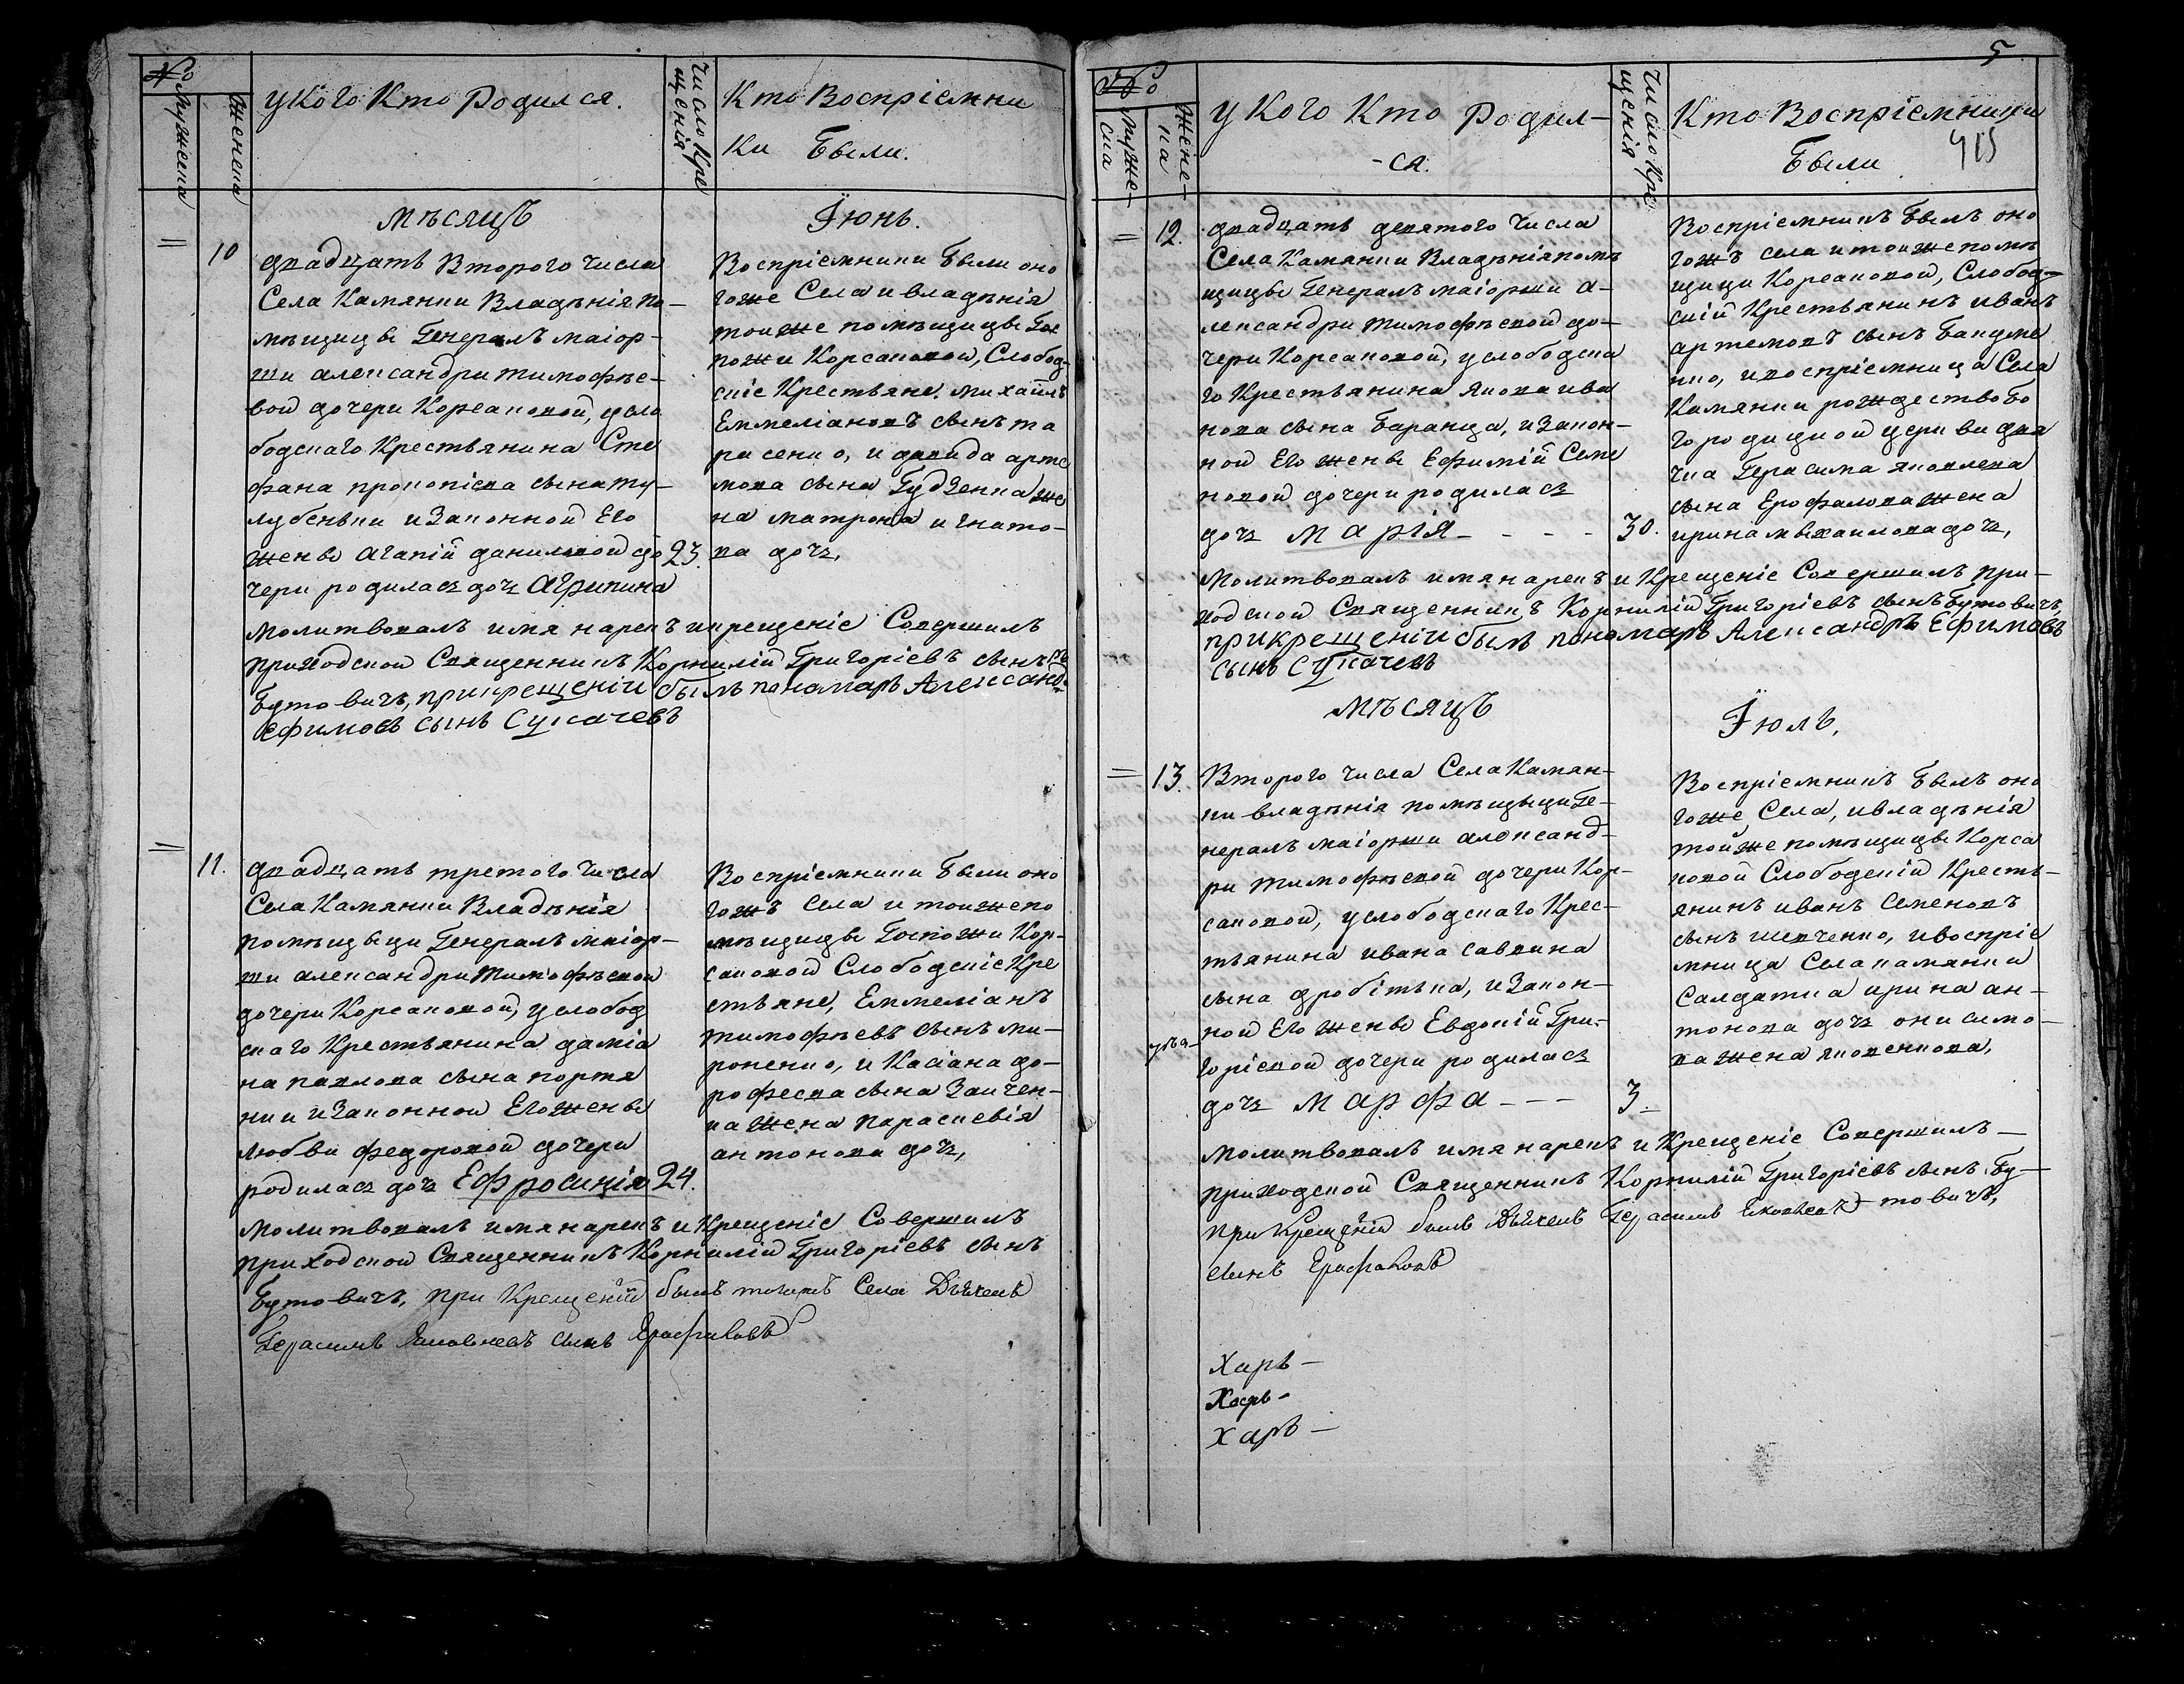 №
Мужеска
Женска
У Кого Кто Родился.
Число Кре
щенія
Кто Воспріемни
ки Были.
Мѣсяцъ
Іюнь.
=
10
двадцать Второго Числа
Села Камянки Владѣнія по-
мѣщицы Генералъ маіор-
ши александри тимофѣе-
вой дочери Корсаковой, у сло
бодскаго Крестьянина Сте
фана прокопіева сына ту-
лубенки и Законной Его
женѣ агапіи даниловой до
чери родилась дочь Агрипина
23.
Воспріемники Были оно
гоже Села и владѣнія
тоиже помѣщицы Гос
пожи Корсаковой, Слобод-
скіе Крестьяне, михаилъ
Еммеліановъ сынъ та
расенко, и давида арте
мова сына Гудзенка же
на матрона игнато-
ва дочь,
Молитвовалъ имя нарекъ и крещеніе Совершилъ
приходской Священникъ Корнилій Григоріевъ сынъ
Бутовичъ, при крещеніи былъ паномарь Александ
ефимовъ сынъ Сукачевъ
=
11.
двадцать третого Числа
Села Камянки Владѣнія
помѣщыци Генералъ маіор-
ши александри тимофѣевой
дочери Корсаковой, у слобод
скаго Крестьянина даміа
на павлова сына портя
нки и Законной Его женѣ
любви федоровой дочери
родилась дочь Ефросинія
24.
Воспріемники Были оно
гожъ Села и тоиже по
мѣщицы Госпожи Кор-
саковой Слободскіе Кре
стьяне, Еммеліанъ
тимофѣевъ сынъ ми-
роненко, и Касіана до-
рофеева сына Заичен-
ка жена параскевія
антонова дочь,
Молитвовалъ имя нарекъ и Крещеніе Совершилъ
приходской Священникъ Корнилій Григоріевъ сынъ
Бутовичъ, при Крещеніи былъ тогожъ Села Дьячекъ
Герасимъ Яковлевъ сынъ Ерофаловъ
5
№
Муже-
ска
Жене-
ка
У Кого Кто Родил-
-ся.
Число Кре
щенія
Кто Воспріемники
Были
415
=
12.
двадцать девятого Числа
Села Камянки Владѣнія помѣ
щицы Генералъ маіорши а-
лександри тимофѣевой до-
чери Корсаковой, у слободска
го Крестьянина якова ива
нова сына Баранца, и Закон-
ной Его женѣ Ефимій Семе
новой дочери родилась
дочь Марія - - - -
30.
Воспріемникъ Былъ оно
гожъ села и тоиже помѣ
щици Корсаковой, Слобод-
скій Крестьянинъ иванъ
артемовъ сынъ Бандуре
нко, и воспріемница Села
Камянки рождество бо
городицкой церкви дяя
чка Герасима яковлева
сына Ерофалова жена
ирина михаилова дочь,
Молитвовалъ имя нарекъ и Крещеніе Совершилъ при-
ходской Священникъ Корнилій Григоріевъ сынъ Бутовичъ,
при крещеніи былъ пономарь Александръ Ефимовъ
сынъ Сукачевъ
Мѣсяцъ
Іюль,
=
13.
Второго Числа Села Камян-
ки владѣнія помѣщыци Ге-
нералъ маіорши александ-
ри тимофѣевой дочери Кор-
саковой, у слободскаго Крес-
тьянина ивана саввина
сына дробітька, и Закон-
ной Его женѣ Евдокій Гри-
горіевой дочери родилась
дочь Марфа - - -
3.
Воспріемникъ Былъ оно
гоже Села, и владѣнія
тойже помѣщицы Корса
ковой Слободскій Кресть-
янинъ иванъ Семеновъ
сынъ шевченко, и воспріе
мница Села камянки
Салдатка ирина ан-
тонова дочь онисимо-
ва жена яковенкова,
Молитвовалъ имя нарекъ и Крещеніе Совершилъ-
приходской Священникъ Корнилій Григоріевъ сынъ Бу-
товичъ,
при Крещеніи былъ Дьячекъ Герасимъ Яковлевъ
сынъ Ерофаловъ
Харь-
Харь-
Харь-